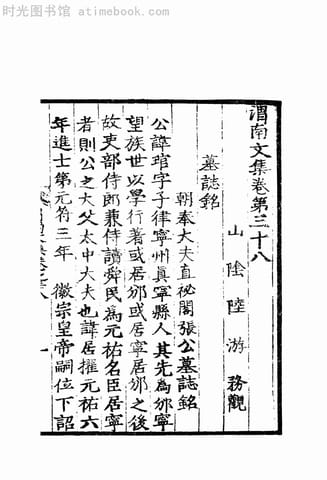 时光图书馆 atimebook.com
渭南文集卷第三十八
山陰陸游務觀
墓誌銘
朝奉大夫直祕閣張公墓誌銘
公諱琯字子律寧州真寧縣人其先為邠寧
望族世以學行著或居邠或居寧居邠之後
故吏部侍郎兼侍讀舜民為元祐名臣居寧
者則公之大父太中大夫也諱居擢元祐六
年進士第元符三年　徽宗皇帝嗣位下詔